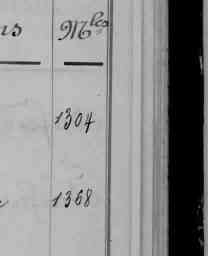 ns Mles
1304
1368